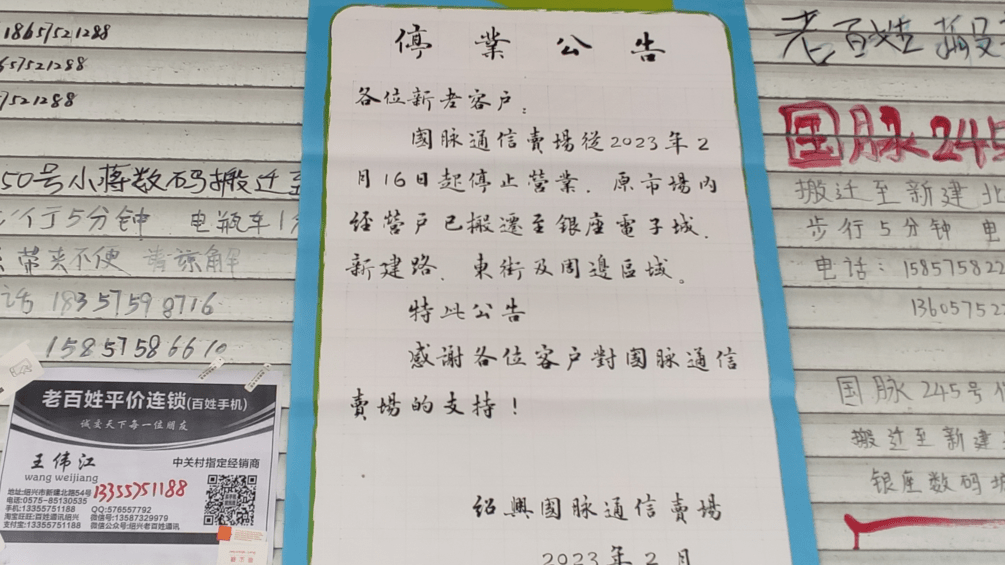 18657521288
657521288
7521288
50号小蒋数码搬迁至
行5分钟 电瓶车1
带来不便 请谅解
话 18357598716
15857586610
老百姓平价连锁(百姓手机)
诚交天下每一位朋友
王伟江
wang weijiang
中关村指定经销商
地址:绍兴市新建北路54号
13355751188
电话:0575-85130535
QQ:576557792
手机:13355751188
微信号:13587329979
淘宝旺旺:百姓通讯绍兴
微信公众号:绍兴老百姓通讯
支付宝:13355751188
停業公告
各位新老客户:
國脉通信賣場從2023年2
月16日起停止營業.原市場内
經營户已搬遷至銀座電子城、
新建路、東街及周邊區域。
特此公告
感謝各位客户對國脉通信
賣場的支持!
紹興國脉通信賣場
2023年2月
老百姓搬
国脉245
搬迁至新建北
步行5分钟 电
电话:158575822
13605752
国脉245号
搬迁至新建
银座数码城